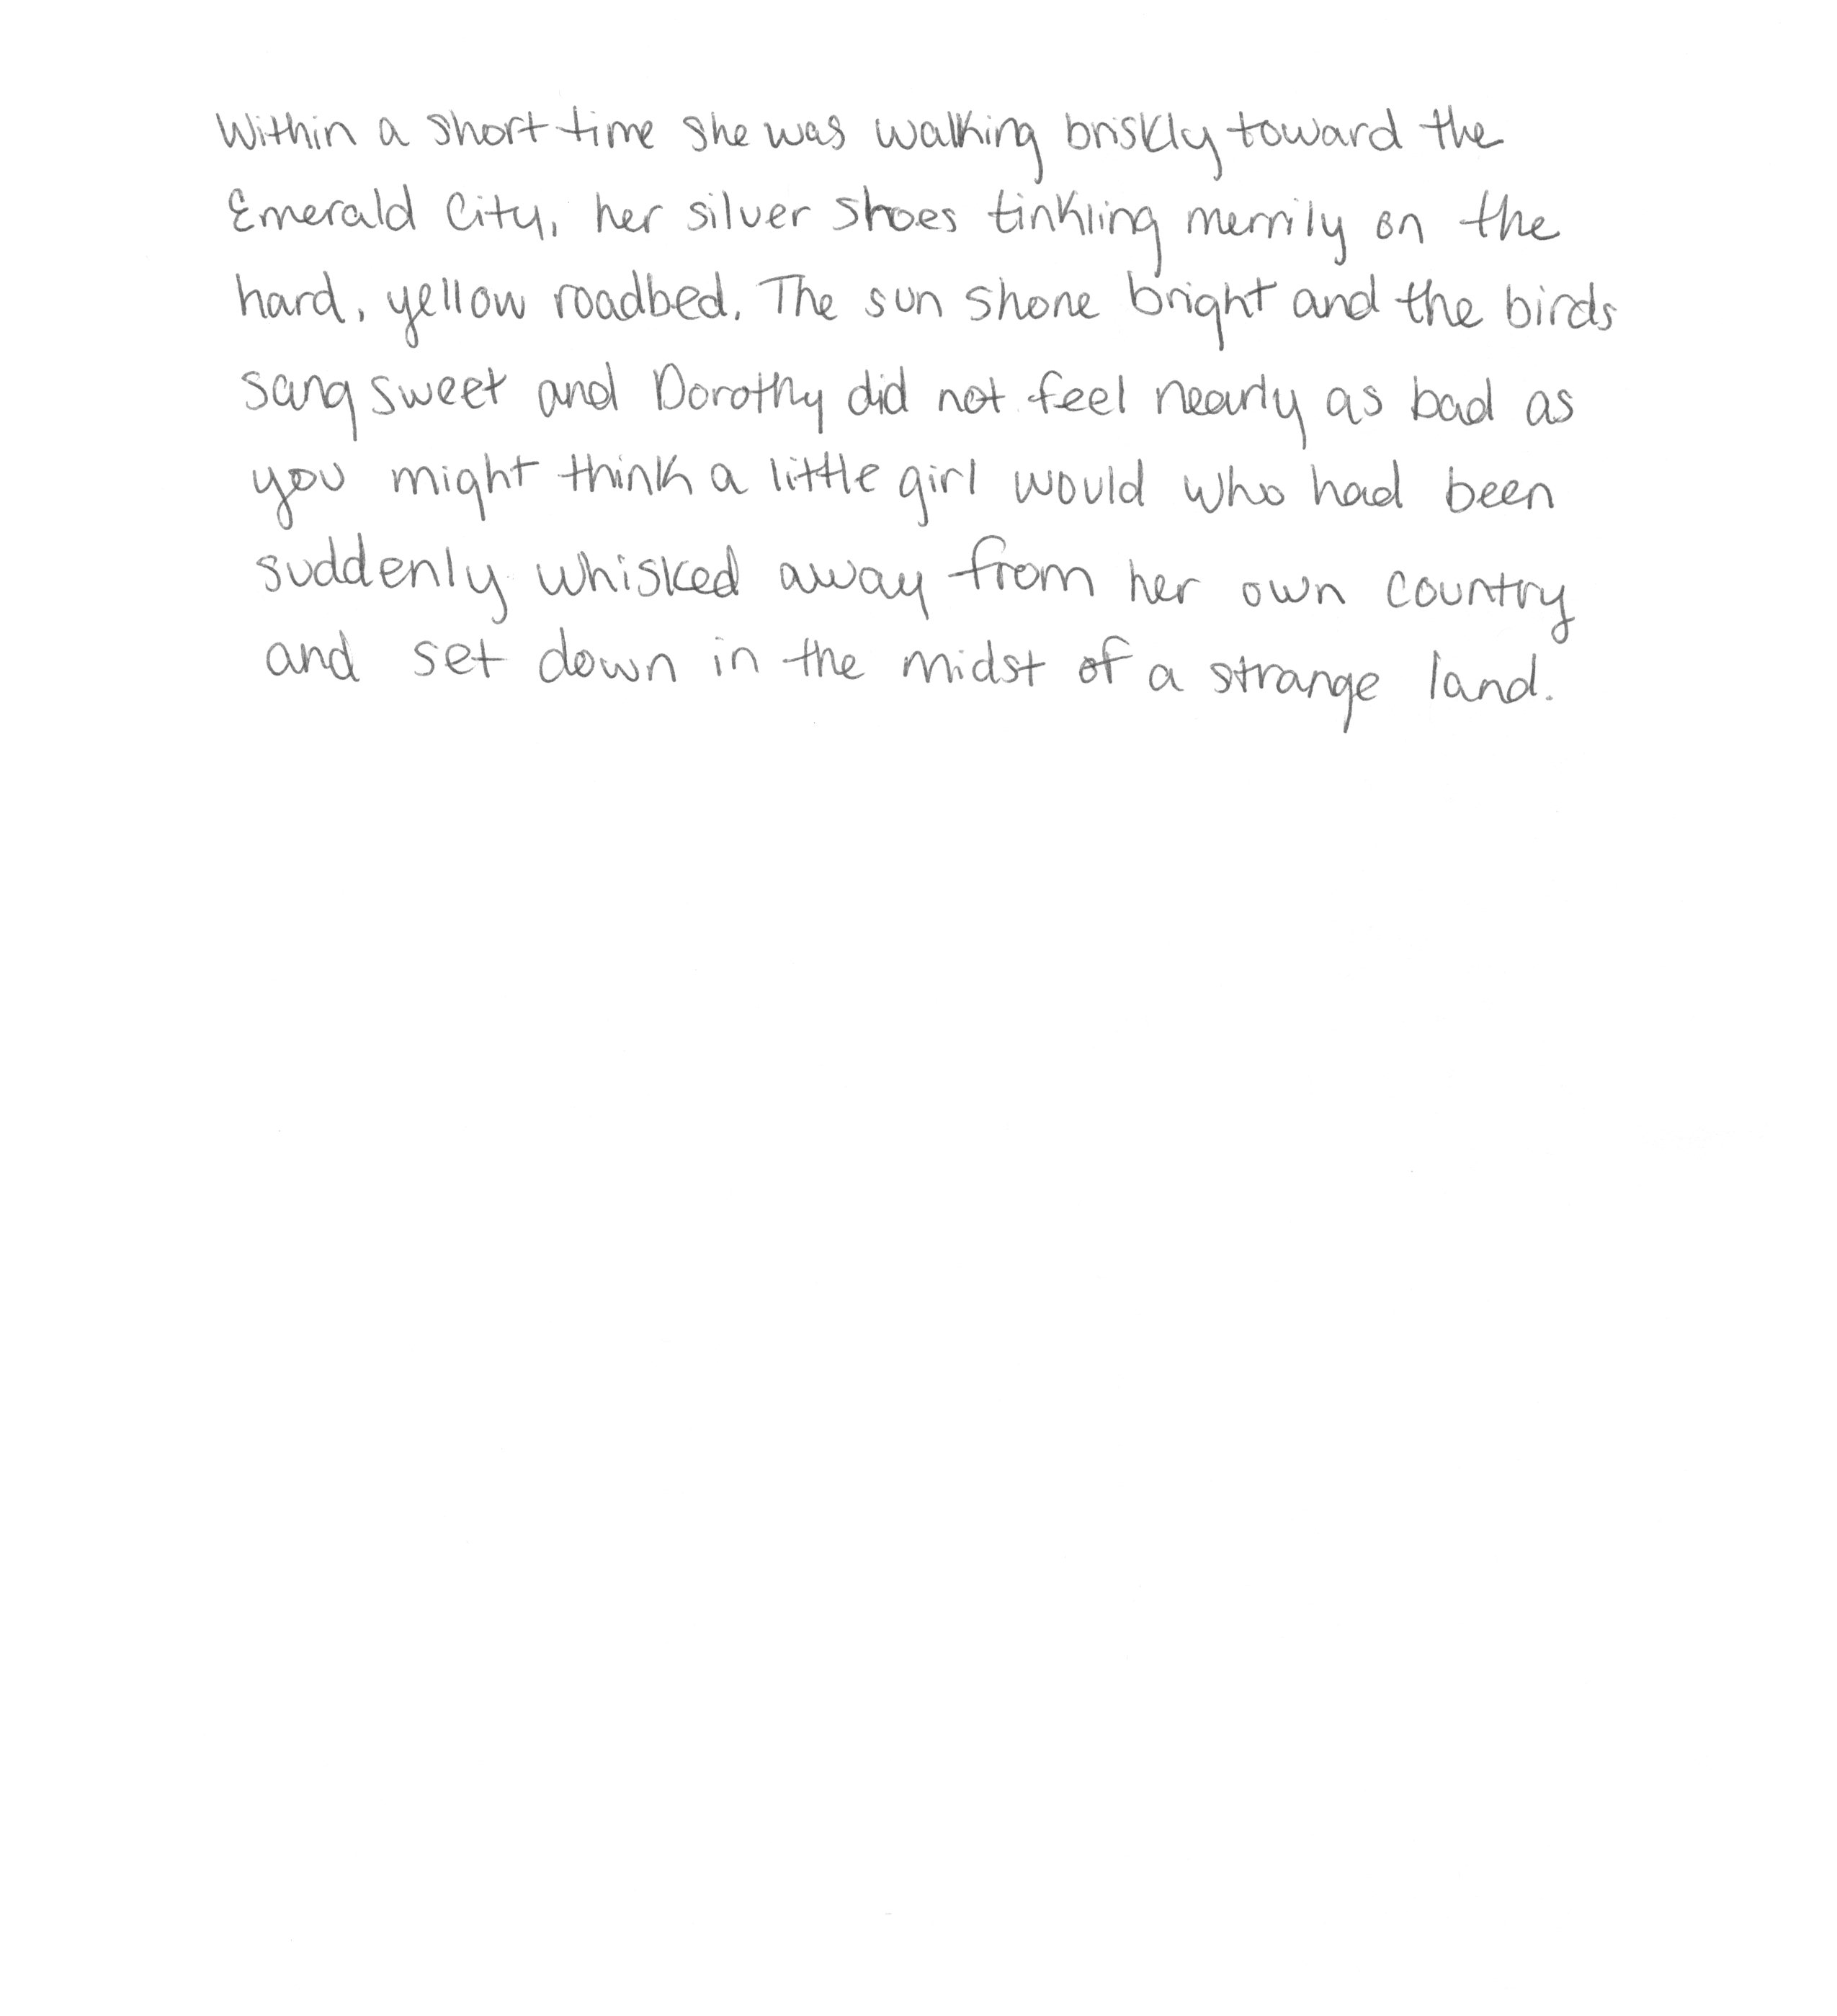 Within a short time she was walking briskly toward the
Emerald City, her silver shoes tinkling merrily on the
hard, yellow roadbed. The sun shone bright and the birds
sang sweet and Dorothy did not feel nearly as bad as
you might think a little girl would who had been
suddenly whisked away from her own country
and set down in the midst of a strange land.